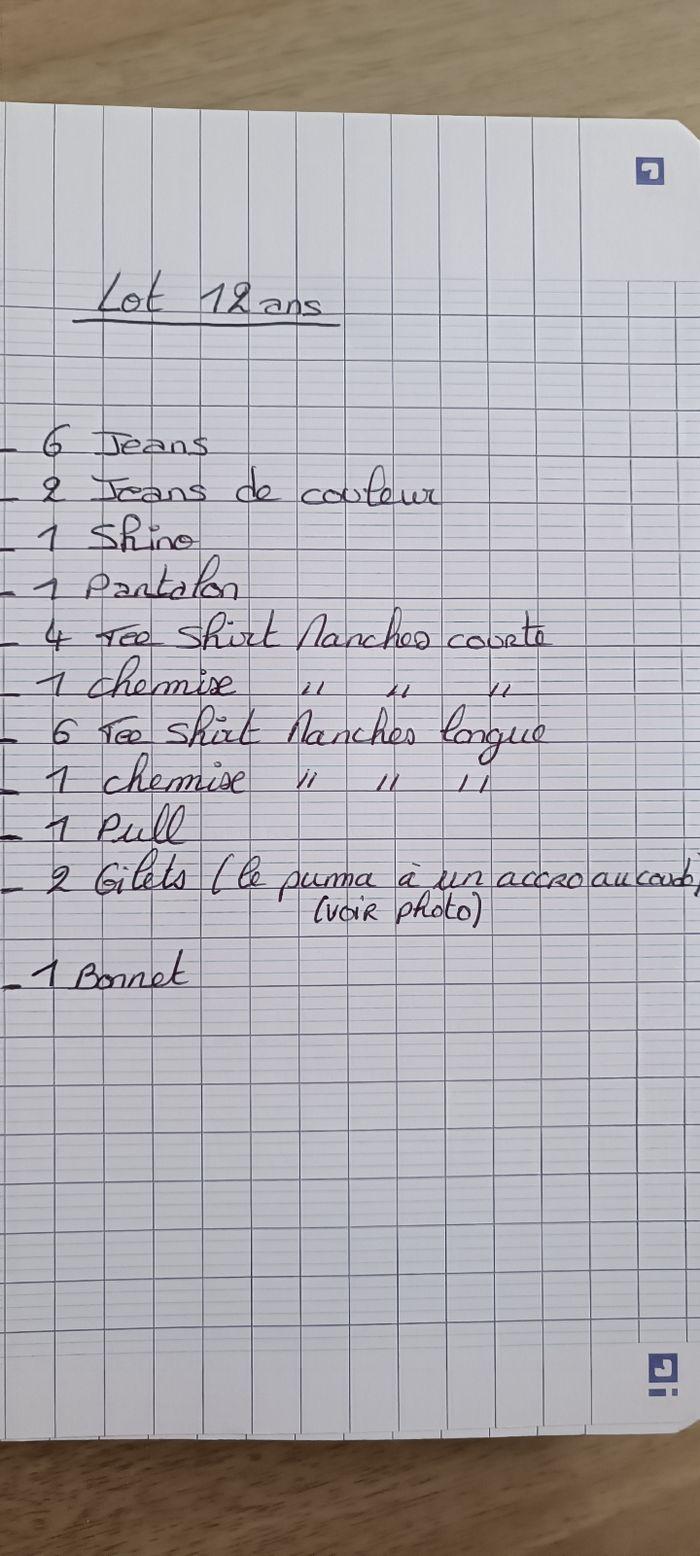 Lot 12 ans
- 6 Jeans
- 2 Jeans de couleur
- 1 Shino
- 1 Pantalon
- 4 Tee Shirt Manches courte
- 1 chemise " " "
- 6 Tee Shirt Manches longue
- 1 chemise " " "
- 1 Pull
- 2 Gilets (le puma à un accro au coude)
(voir photo)
- 1 Bonnet